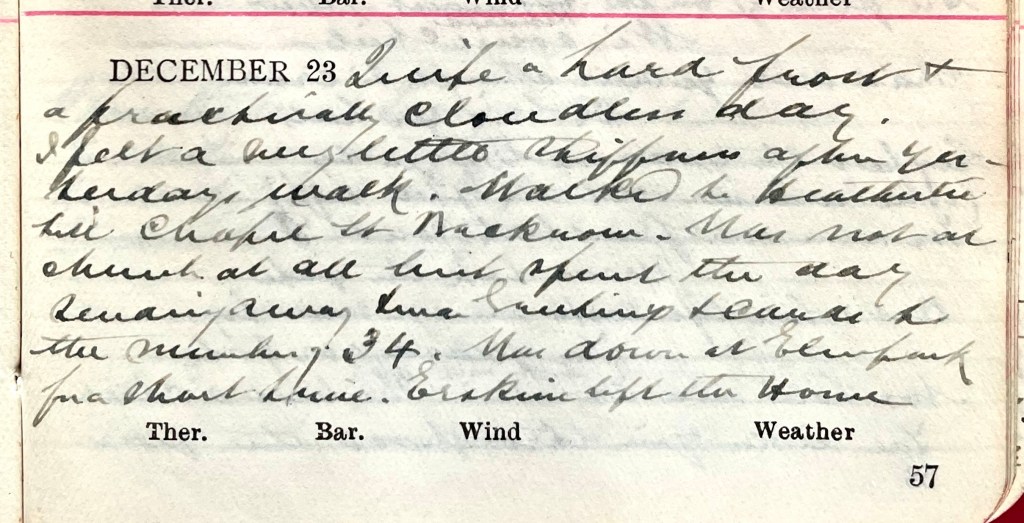 Ther. Bar. Wind Weather
DECEMBER 23 Quite a hard frost +
a practically cloudless day.
I felt a very little stiffness after yes-
terdays walk. Walked to
hill Chapel St . Was not at
church at all but spent the day
sending away Xmas Greetings + cards to
the number of 34. Was down at Elmpark
for a short time. Erskine left the Home
Ther. Bar. Wind Weather
57